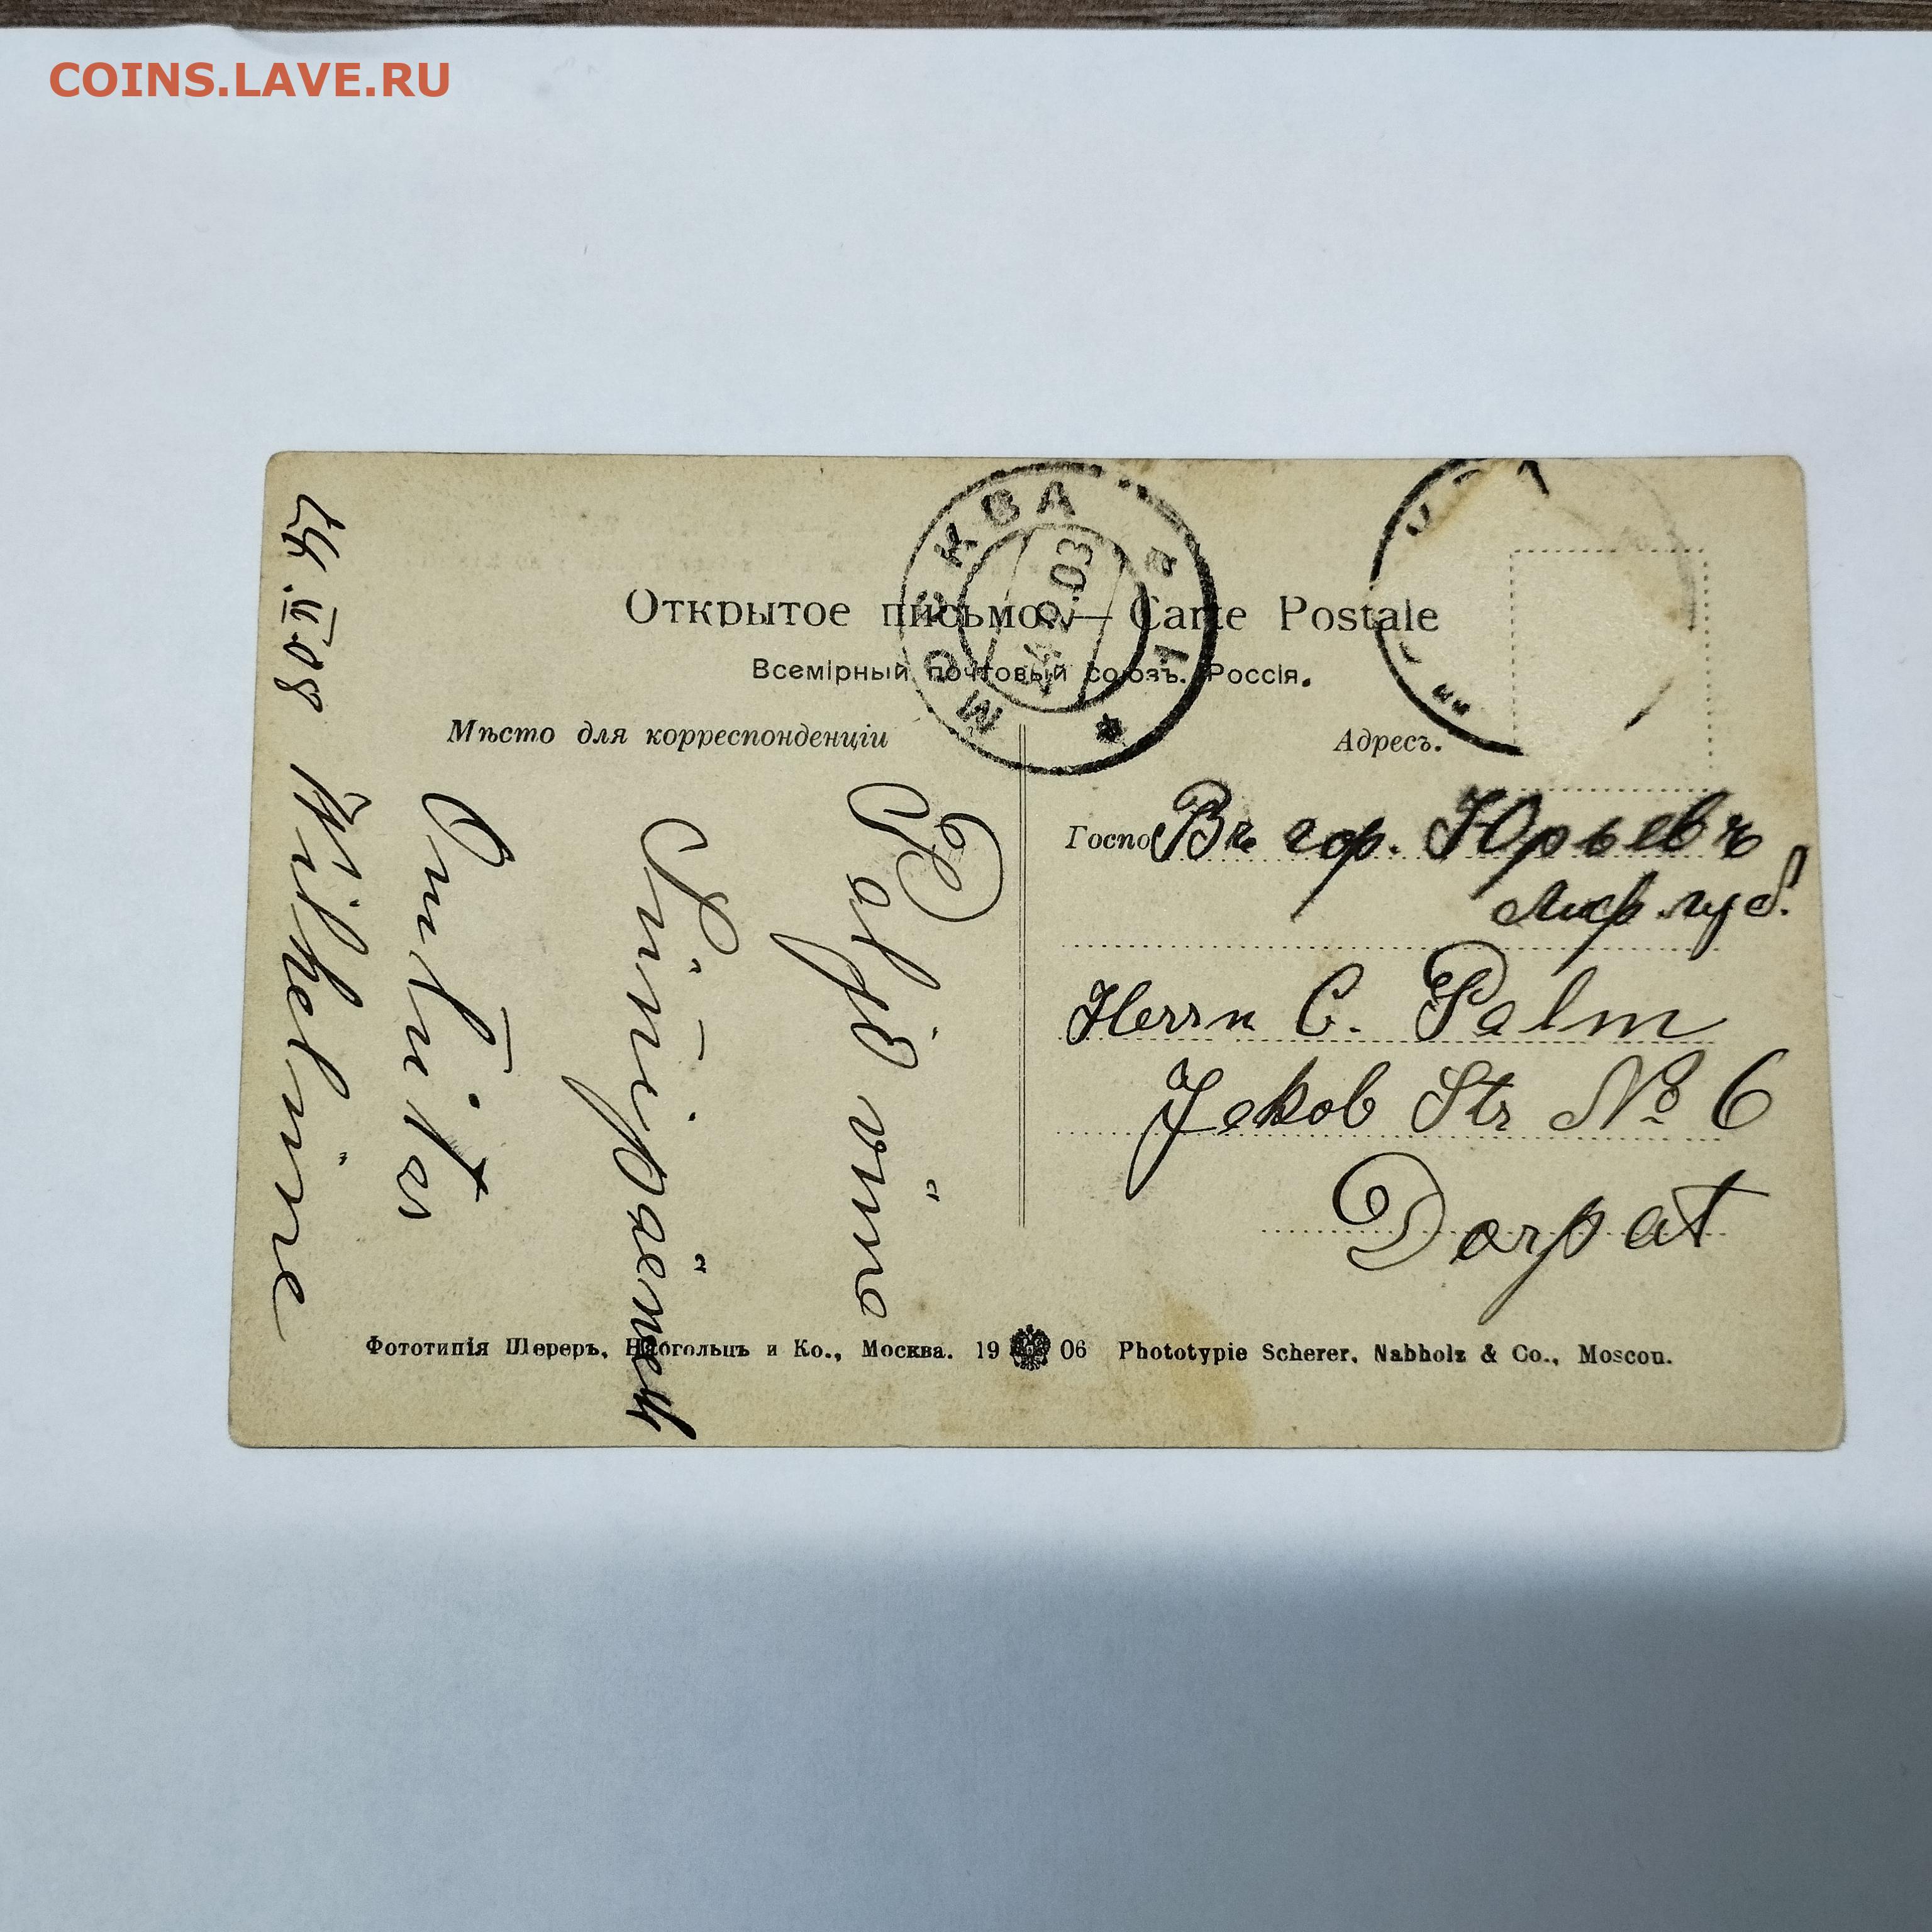 COINS.LAVE.RU
МОСКВА
Открытое письмо. — Carte Postale
Всемірный почтовый союзъ. Россія.
Мѣсто для корреспонденціи
Адресъ.
24 II 08
Palju õnne
Sünipäewaks
Wilhelmine
Госпо
Въ гор. Юрьевъ
Лиф. губ.
Herrn C. Palm
Jakob Str № 6
Dorpat
Фототипія Шереръ, Набгольцъ и Ко., Москва. 1906 Phototypie Scherer, Nabholz & Co., Moscou.